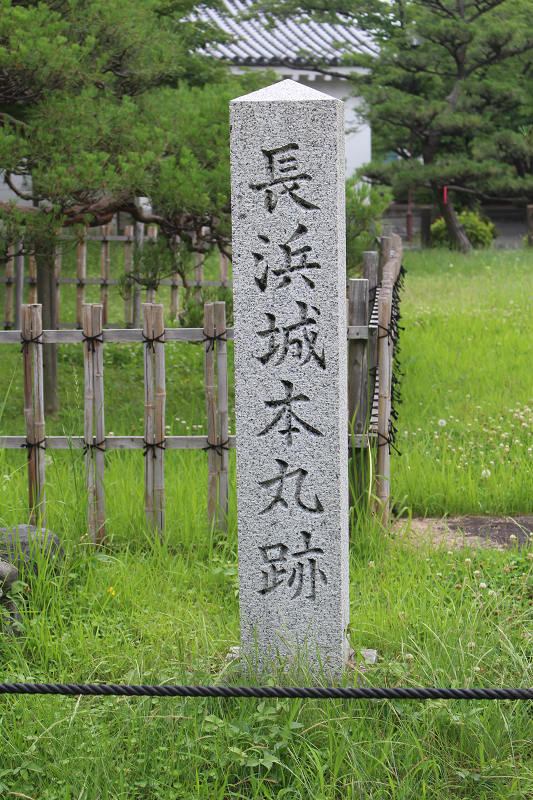 長浜城本丸跡